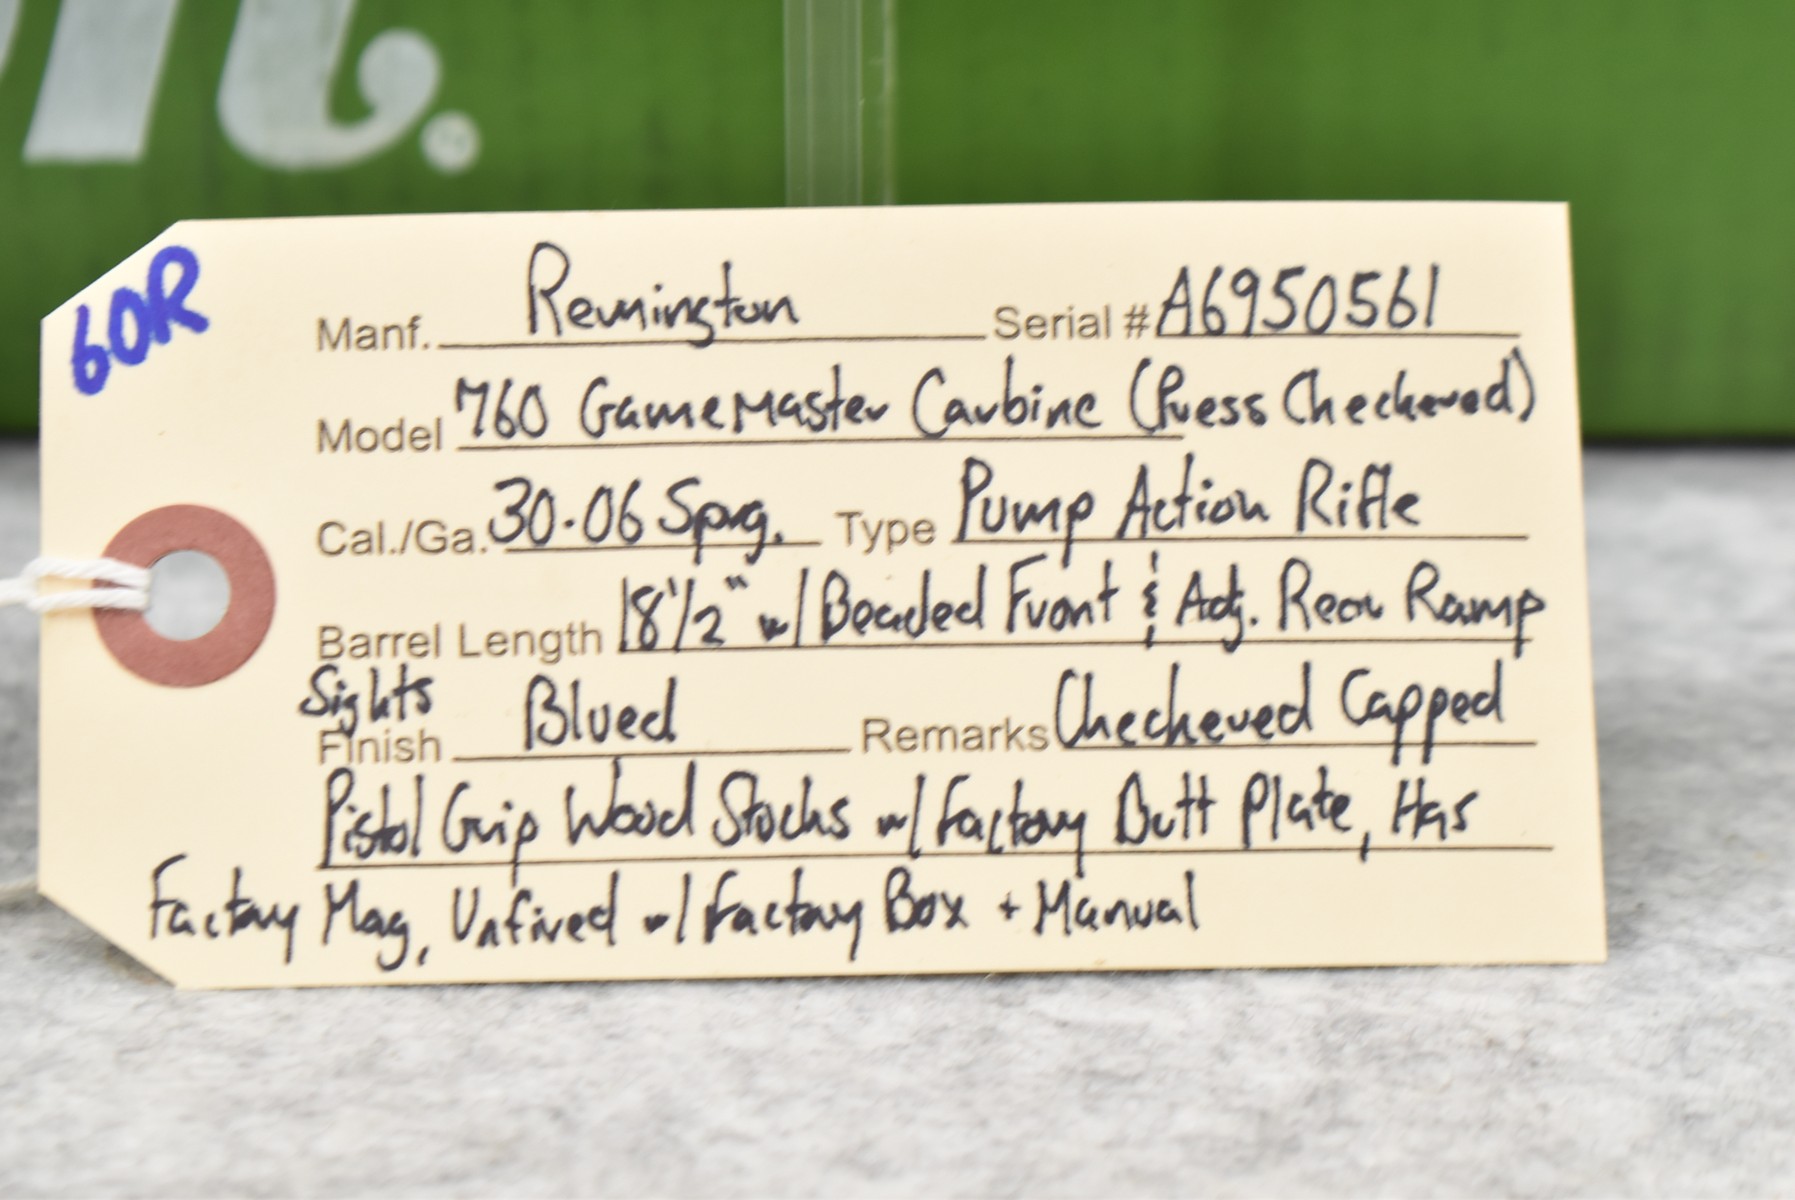 n.®
60R
Manf. Remington Serial # A6950561
Model 760 GameMaster Carbine (Press Checkered)
Cal./Ga. 30-06 Sprg. Type Pump Action Rifle
Barrel Length 18 1/2" w/ Beaded Front & Adj. Rear Ramp
Sights
Finish Blued Remarks Checkered Capped
Pistol Grip Wood Stocks w/ Factory Butt Plate, Has
Factory Mag, Unfired w/ Factory Box + Manual